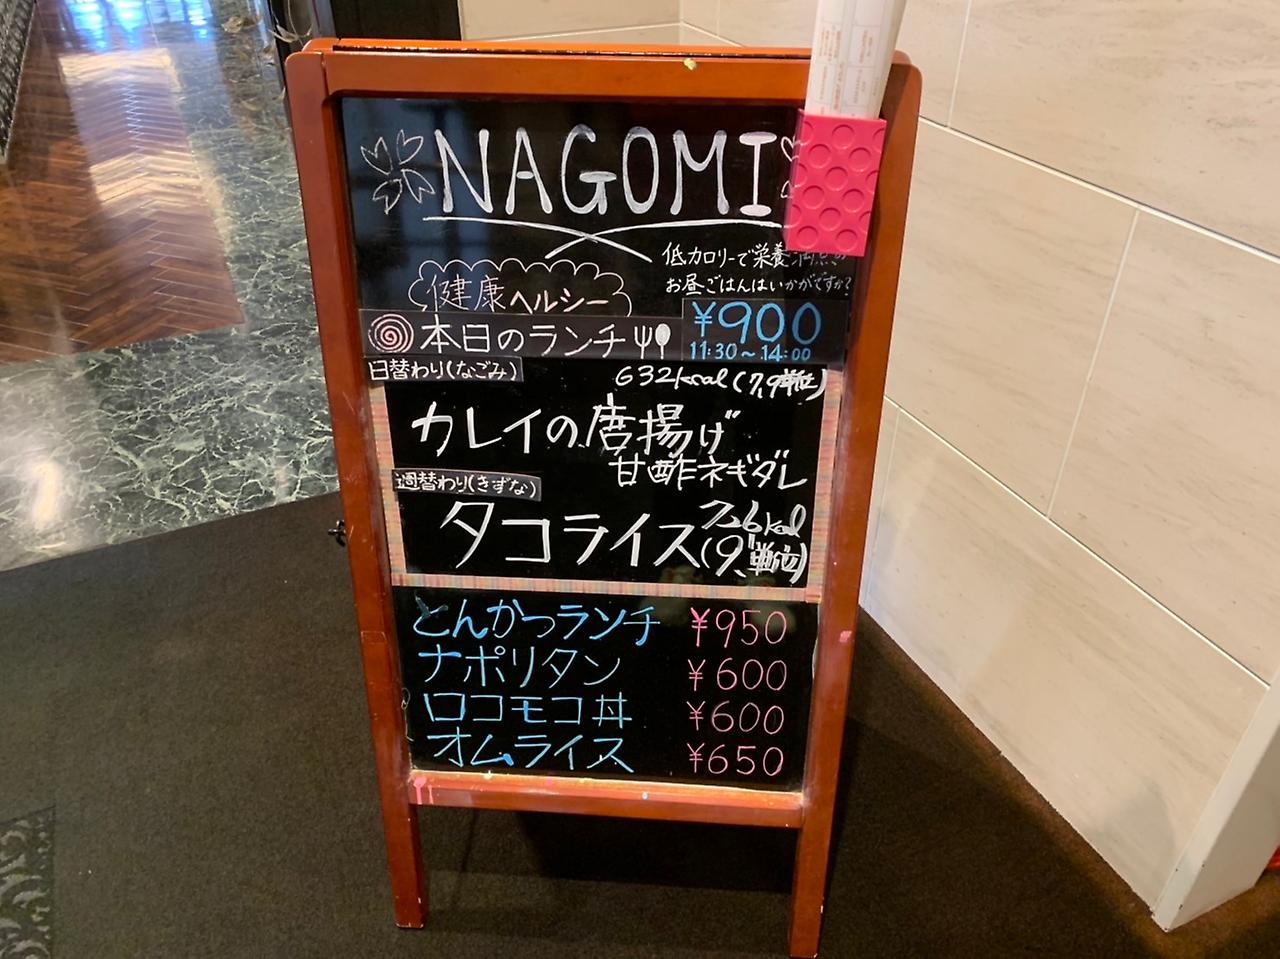 NAGOMI
低カロリーで栄養満点の
お昼ごはんはいかがですか?
健康ヘルシー
本日のランチ ¥900
11:30～14:00
日替わり(なごみ)
632kcal(7.9単位)
カレイの唐揚げ
甘酢ネギダレ
週替わり(きずな)
726kcal
タコライス(9.1単位)
とんかつランチ ¥950
ナポリタン ¥600
ロコモコ丼 ¥600
オムライス ¥650